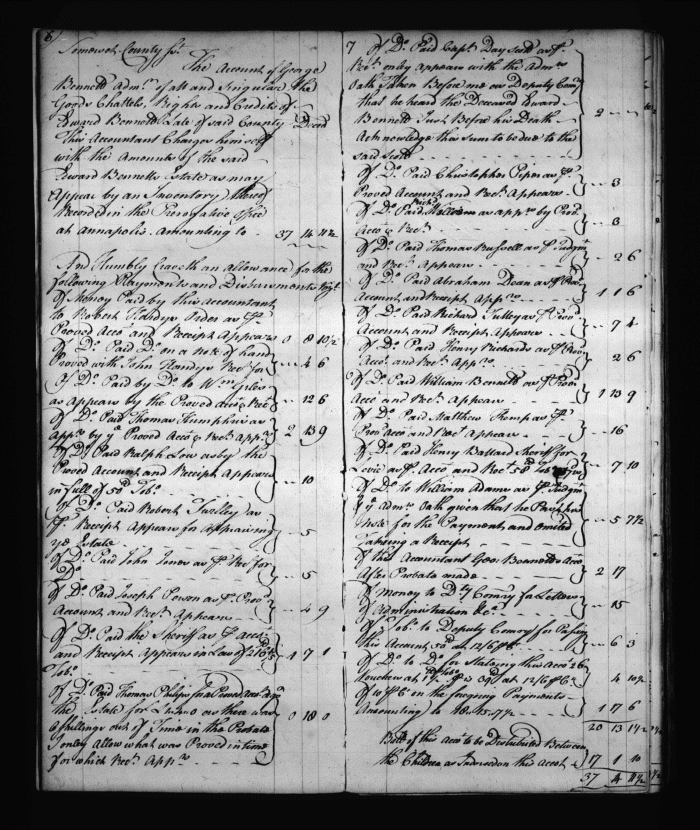 6
Somerset County Sst.
The Account of George
Bennett Admr. of all and Singular the
Goods Chattels, Rights and Credits of
Edward Bennett Late of said County Decd
This Accountant Charges himself
with the Amount of the said
Edward Bennetts Estate as may
Appear by an Inventory thereof
Recorded in the Prerogative Office
at Annapolis. Amounting to - 37 14 11½
And Humbly Craveth an allowance for the
following Payments and Disbursements Vizt.
Of Money Paid by this Accountant
to Robert order as pr.
Proved Acco. and Receipt Appears 0 8 10½
Of Do. Paid Do. on a note of hand
Proved with John Handys Rec. for - 4 6
Of Do. Paid by Do. to Wm. Giles
as Appear by the Proved acco. & Rect - 12 6
Of Do. Paid Thomas Humphris as
Appr. by ye. Proved Acco. & Rect. Appr. 2 13 9
Of Do. Paid Ralph Low as by the
Proved Account and Receipt Appears
in full of 50 Tobo. - - 10
Of Do. Paid Robert Twilley as
pr. Receipt Appears for Appraising
ye Estate - - 5
Of Do. Paid John Jones as pr. Rec. for
Do. - - 5
Of Do. Paid Joseph Powen as pr. Prov.
Account and Rect. Appears - 4 9
Of Do. Paid the Sheriff as pr. acco.
and Receipt Appears in Lew of
Tobo. 4 7 1
Of Do. Paid Thomas Philips
the Estate for as there was
6 shillings out of Time in the Probate
I only Allow what was Proved in time
for which Rect. Appr. 0 18 0
7
Of Do. Paid Capt. Day Scott as pr.
Rect. only Appears with the Admr.
Oath taken Before me as Deputy Comy
that he heard the Deceased Edward
Bennett Just Before his Death
Acknowledge this Sum to be due to the
said Scott - 2 - -
Of Do. Paid Christopher Piper as pr.
Proved Account and Rect. Appears - 3
Of Do. Paid as appr. by Prov.
Acco. & Rect. - 8
Of Do. Paid Thomas Bussell as pr. Judgmt
and Rect. Appear - 2 6
Of Do. Paid Abraham Dean as pr. Prov.
Account and Receipt Appr. 1 1 6
Of Do. Paid Richard Tulley as pr. Prov.
Account and Receipt Appears - 7 4
Of Do. Paid Henry Richards as pr. Prov.
Acco. and Rect. Appr. 2 6
Of Do. Paid William Bennett as pr. Prov.
Acco. and Rect. Appear 1 13 9
Of Do. Paid Matthew Kemp as pr.
Prov. Acco. and Rect. Appear - 16
Of Do. Paid Henry Ballard Sheriff for
Levie as pr. Acco. and Rect. - 7 10
Of Do. to William Adams as pr. Judgmt
& ye Admr. Oath given that he Paid his
note for the Payment and omited
Takeing a Receipt - 5 7½
Of this Accountant Geo. Bennetts Acco.
After Probate made 2 17
Of money to Dty. Comry for Letters
of Administration &c. - 15
Of Tobo. to Deputy Comry for Passing
this Account 50 at 12/6 pr. Ct. - 6 3
Of Do. to Do. for Stateing this Acco. 26
Vouchers at at 12/6 pr. Ct. 4 10½
Of 10 pr. Ct. on the foregoing Payments
Amounting to 18..15..7½ 1 17 6
20 13 1½
Ball. of this Acco. to be Distributed Between
the Children as Indorsed on this Accot. 17 1 10
37 14 11½